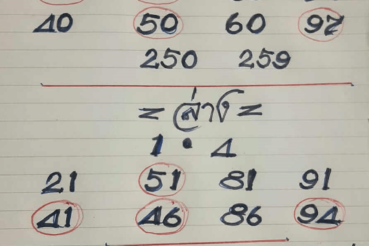 40 50 60 97
250 259
= ล่าง =
1 • 4
21 51 81 91
41 46 86 94